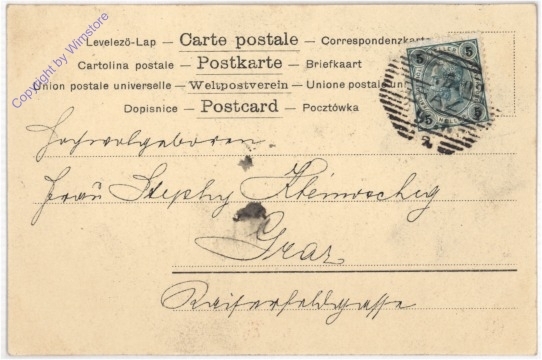 Levelező-Lap — Carte postale — Correspondenzkarte
Cartolina postale — Postkarte — Briefkaart
Union postale universelle — Weltpostverein — Unione postale
Dopisnice — Postcard — Pocztówka
5 5
5 5
Hochwolgeboren
Frau Stephy Kleinoscheg
Graz
Kaiserfeldgasse
Copyright by Wimstore